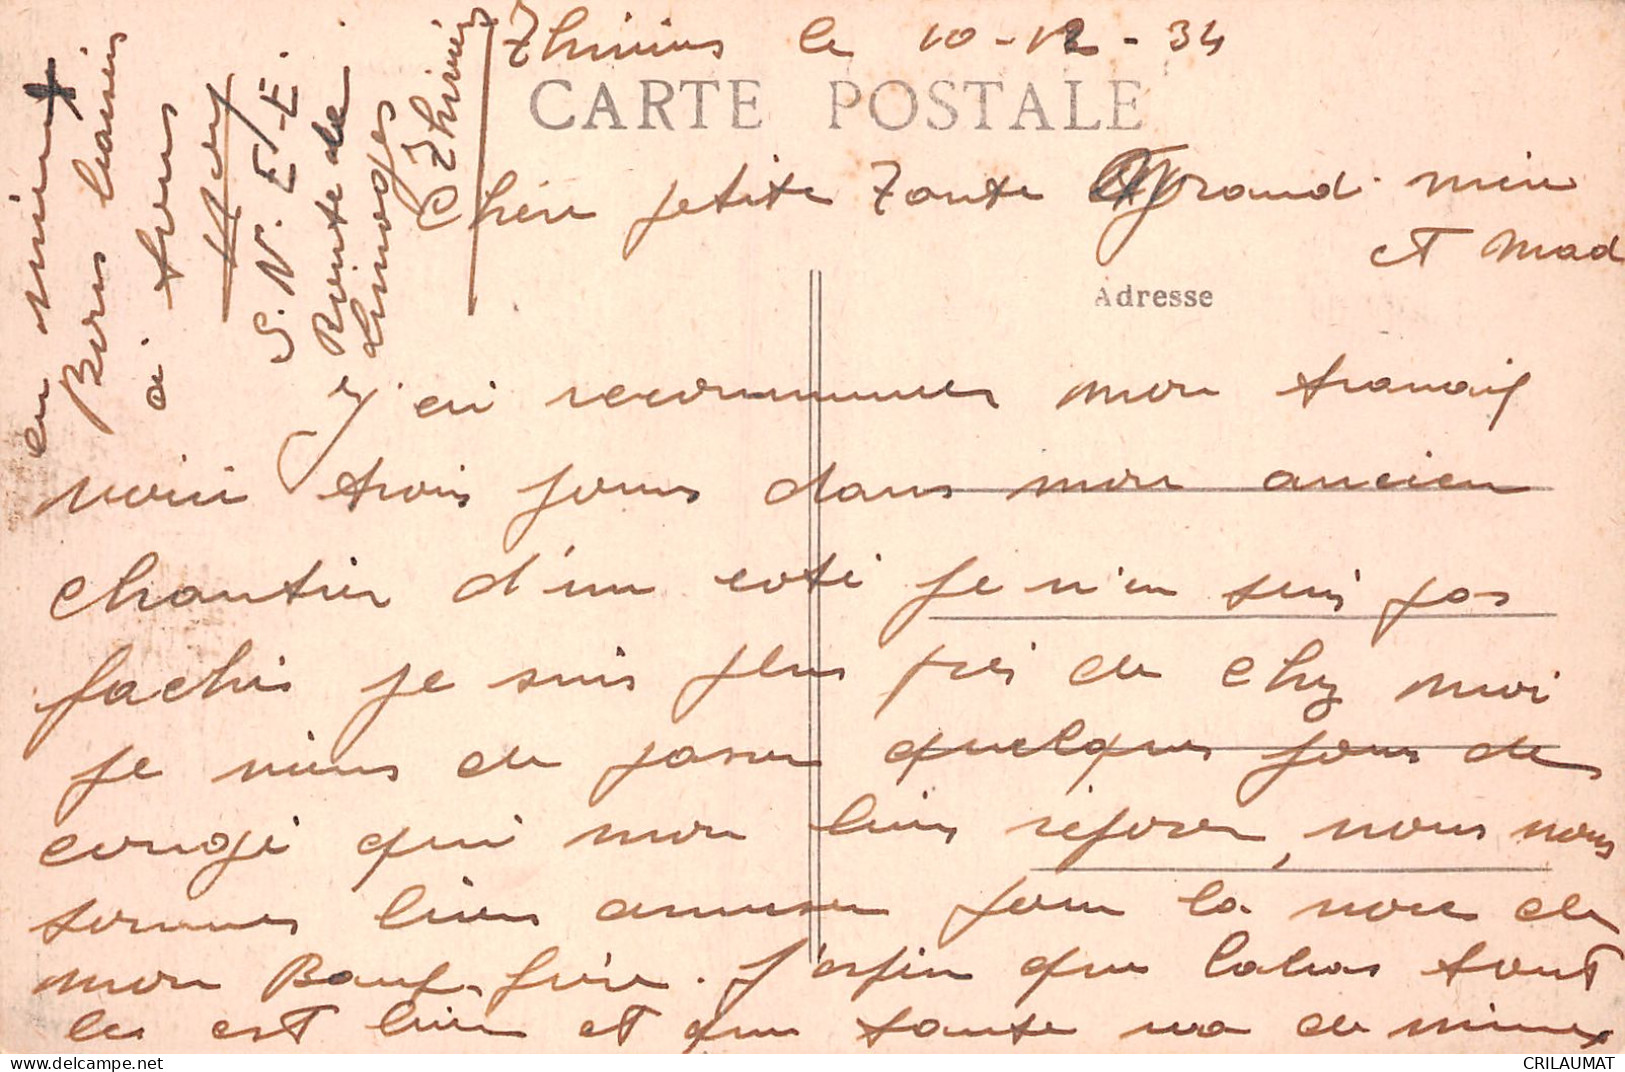 Thiviers le 10-12-34
CARTE POSTALE
Chère petite Tante Grand. mère
et Mad
Adresse
J'ai recommencer mon travail
voici trois jours dans mon ancien
chantier d'un coté je n'en suis pas
fachés je suis plus près de chez moi
je viens de passer quelques jours de
congé qui mon bien réposer, nous nous
sommes bien amuser pour la noce de
mon Beauf-frère. J'espèr que labas tout
les est bien et que tante va de mieux
en mieux
Bons baisers
a tous
S. N. E. E.
Route de
Limoges
Thiviers
www.delcampe.net
CRILAUMAT